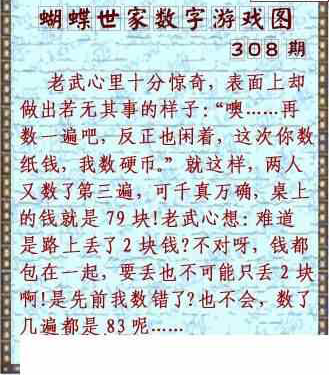 蝴蝶世家数字游戏图
308 期
老武心里十分惊奇，表面上却
做出若无其事的样子：“噢……再
数一遍吧，反正也闲着，这次你数
纸钱，我数硬币。”就这样，两人
又数了第三遍，可千真万确，桌上
的钱就是 79 块!老武心想：难道
是路上丢了 2 块钱?不对呀，钱都
包在一起，要丢也不可能只丢 2 块
啊!是先前我数错了?也不会，数了
几遍都是 83 呢……